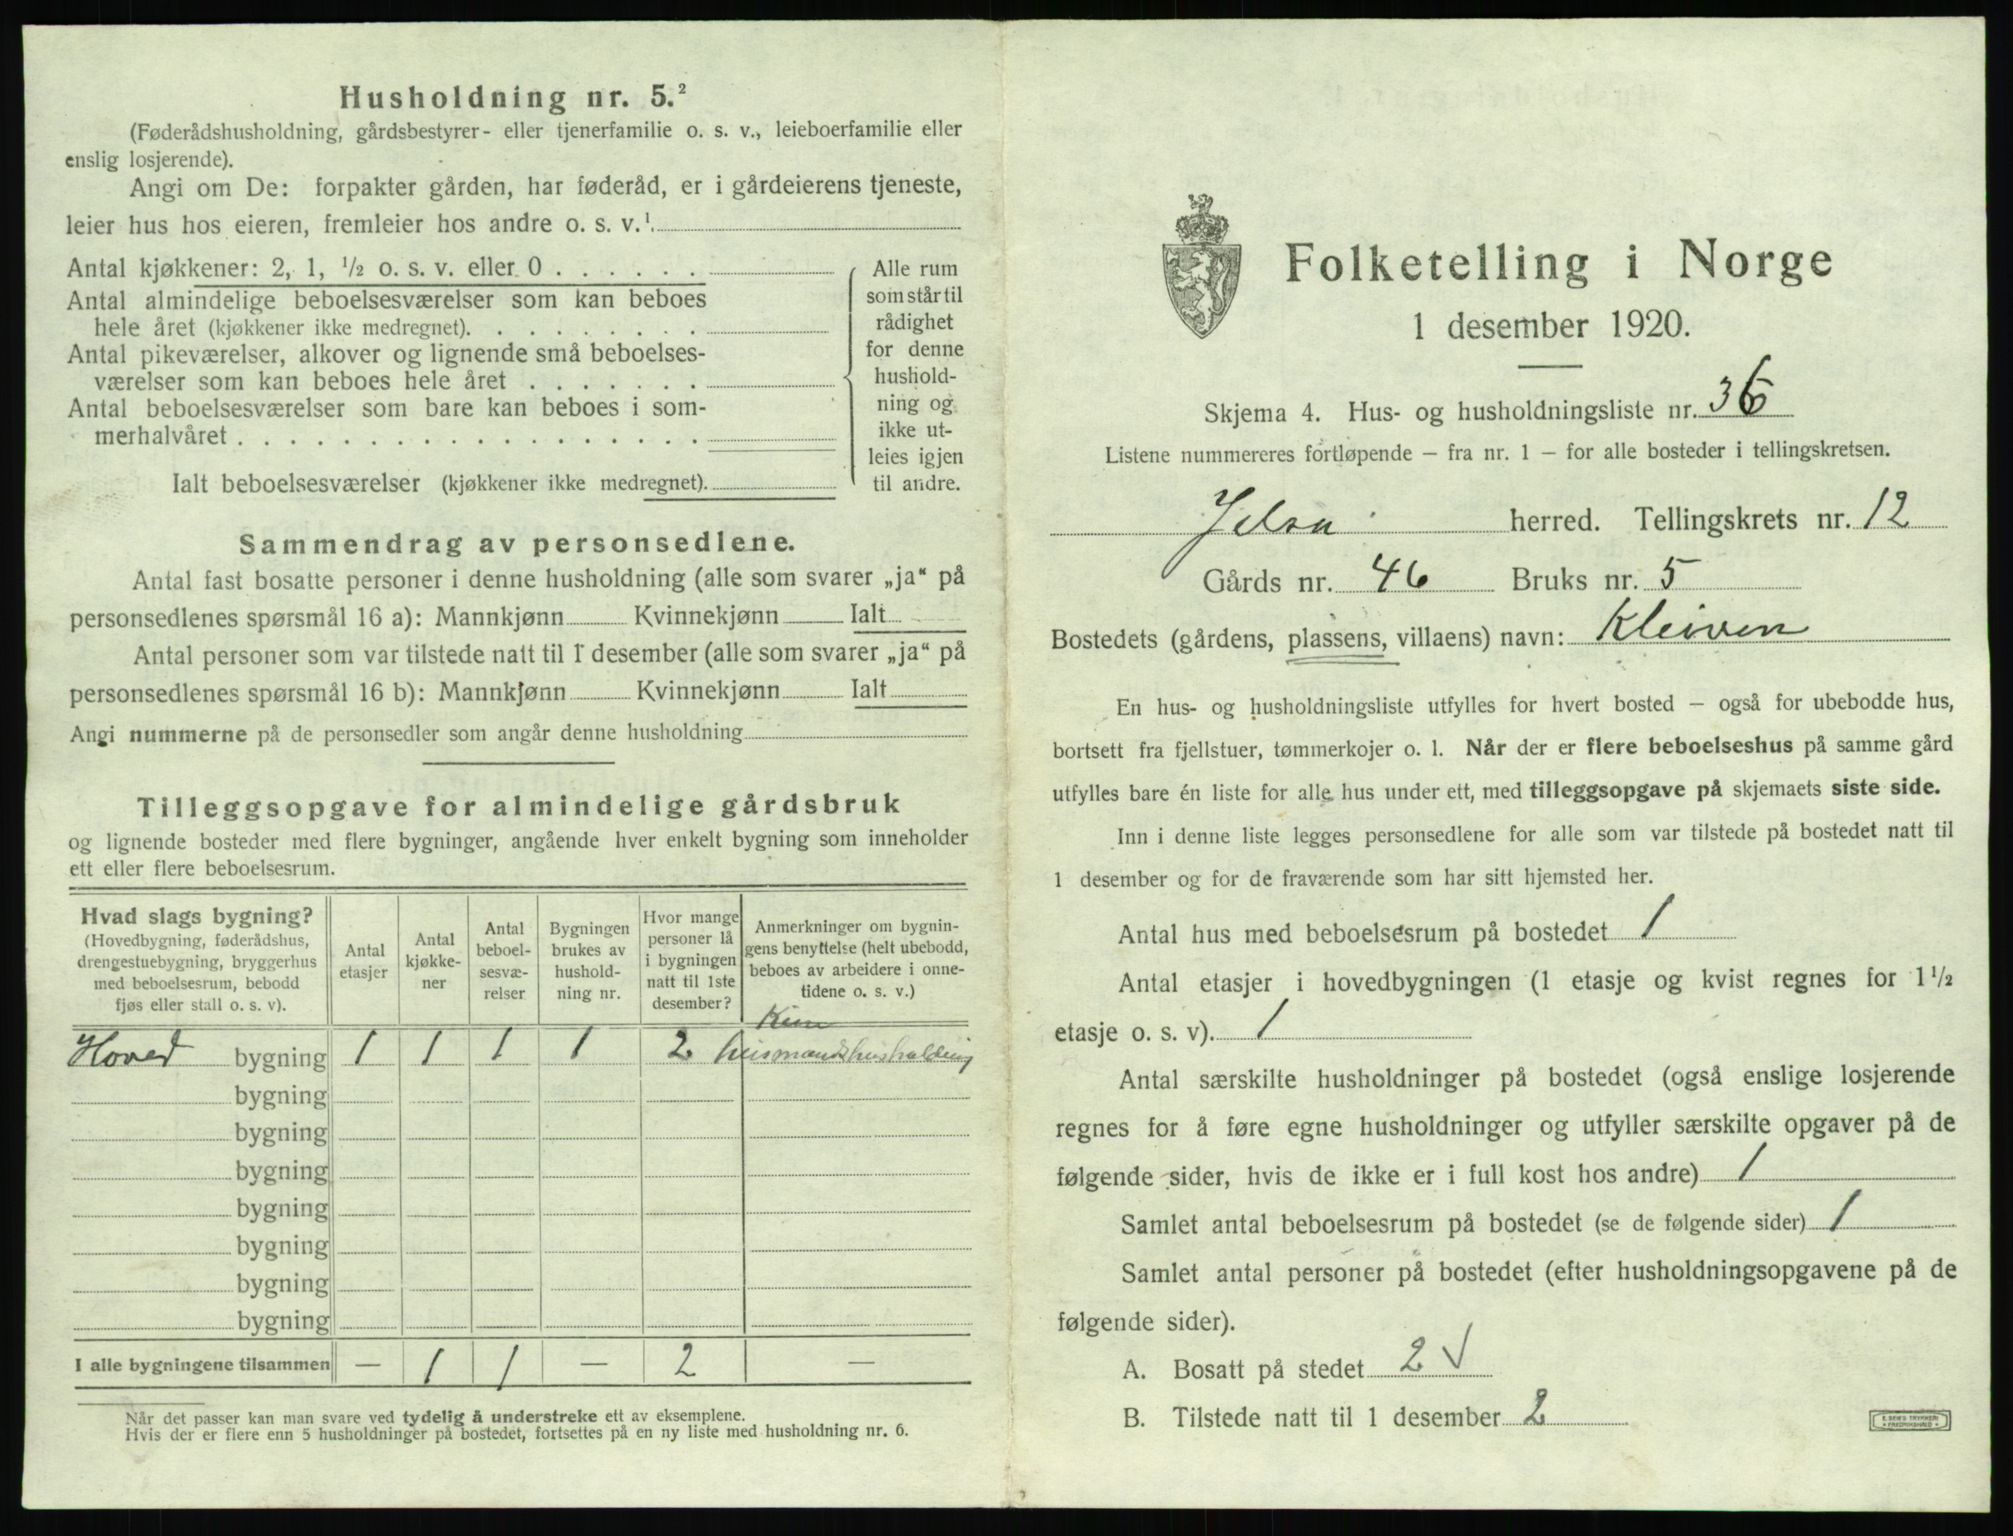 Husholdning nr. 5.²
(Føderådshusholdning, gårdsbestyrer- eller tjenerfamilie o. s. v., leieboerfamilie eller
enslig losjerende).
Angi om De: forpakter gården, har føderåd, er i gårdeierens tjeneste,
leier hus hos eieren, fremleier hos andre o. s. v.¹
Antal kjøkkener: 2, 1, ½ o. s. v. eller 0 . . . . . .
Antal almindelige beboelsesværelser som kan beboes
hele året (kjøkkener ikke medregnet). . . . . . . . . .
Antal pikeværelser, alkover og lignende små beboelses-
værelser som kan beboes hele året . . . . . . .
Antal beboelsesværelser som bare kan beboes i som-
merhalvåret . . . . . . . . . . . . . . . . . .
Alle rum
som står til
rådighet
for denne
hushold-
ning og
ikke ut-
leies igjen
til andre.
Ialt beboelsesværelser (kjøkkener ikke medregnet).
Sammendrag av personsedlene.
Antal fast bosatte personer i denne husholdning (alle som svarer „ja“ på
personsedlenes spørsmål 16 a): Mannkjønn Kvinnekjønn Ialt
Antal personer som var tilstede natt til 1 desember (alle som svarer „ja“ på
personsedlenes spørsmål 16 b): Mannkjønn Kvinnekjønn Ialt
Angi nummerne på de personsedler som angår denne husholdning
Tilleggsopgave for almindelige gårdsbruk
og lignende bosteder med flere bygninger, angående hver enkelt bygning som inneholder
ett eller flere beboelsesrum.
Hvad slags bygning?
(Hovedbygning, føderådshus,
drengestuebygning, bryggerhus
med beboelsesrum, bebodd
fjøs eller stall o. s. v).
Antal
etasjer
Antal
kjøkke-
ner
Antal
beboel-
sesvæ-
relser
Bygningen
brukes av
hushold-
ning nr.
Hvor mange
personer lå
i bygningen
natt til 1ste
desember?
Anmerkninger om bygnin-
gens benyttelse (helt ubebodd,
beboes av arbeidere i onne-
tidene o. s. v.)
Hoved bygning 1 1 1 1 2 husmandshusholdning
bygning
bygning
bygning
bygning
bygning
bygning
bygning
I alle bygningene tilsammen — 1 1 — 2 —
Når det passer kan man svare ved tydelig å understreke ett av eksemplene.
Hvis der er flere enn 5 husholdninger på bostedet, fortsettes på en ny liste med husholdning nr. 6.
Folketelling i Norge
1 desember 1920.
Skjema 4. Hus- og husholdningsliste nr. 36
Listene nummereres fortløpende – fra nr. 1 – for alle bosteder i tellingskretsen.
Jelsa herred. Tellingskrets nr. 12
Gårds nr. 46 Bruks nr. 5
Bostedets (gårdens, plassens, villaens) navn: Kleiven
En hus- og husholdningsliste utfylles for hvert bosted – også for ubebodde hus,
bortsett fra fjellstuer, tømmerkojer o. l. Når der er flere beboelseshus på samme gård
utfylles bare én liste for alle hus under ett, med tilleggsopgave på skjemaets siste side.
Inn i denne liste legges personsedlene for alle som var tilstede på bostedet natt til
1 desember og for de fraværende som har sitt hjemsted her.
Antal hus med beboelsesrum på bostedet 1
Antal etasjer i hovedbygningen (1 etasje og kvist regnes for 1½
etasje o. s. v). 1
Antal særskilte husholdninger på bostedet (også enslige losjerende
regnes for å føre egne husholdninger og utfyller særskilte opgaver på de
følgende sider, hvis de ikke er i full kost hos andre) 1
Samlet antal beboelsesrum på bostedet (se de følgende sider) 1
Samlet antal personer på bostedet (efter husholdningsopgavene på de
følgende sider).
A. Bosatt på stedet 2 √
B. Tilstede natt til 1 desember 2